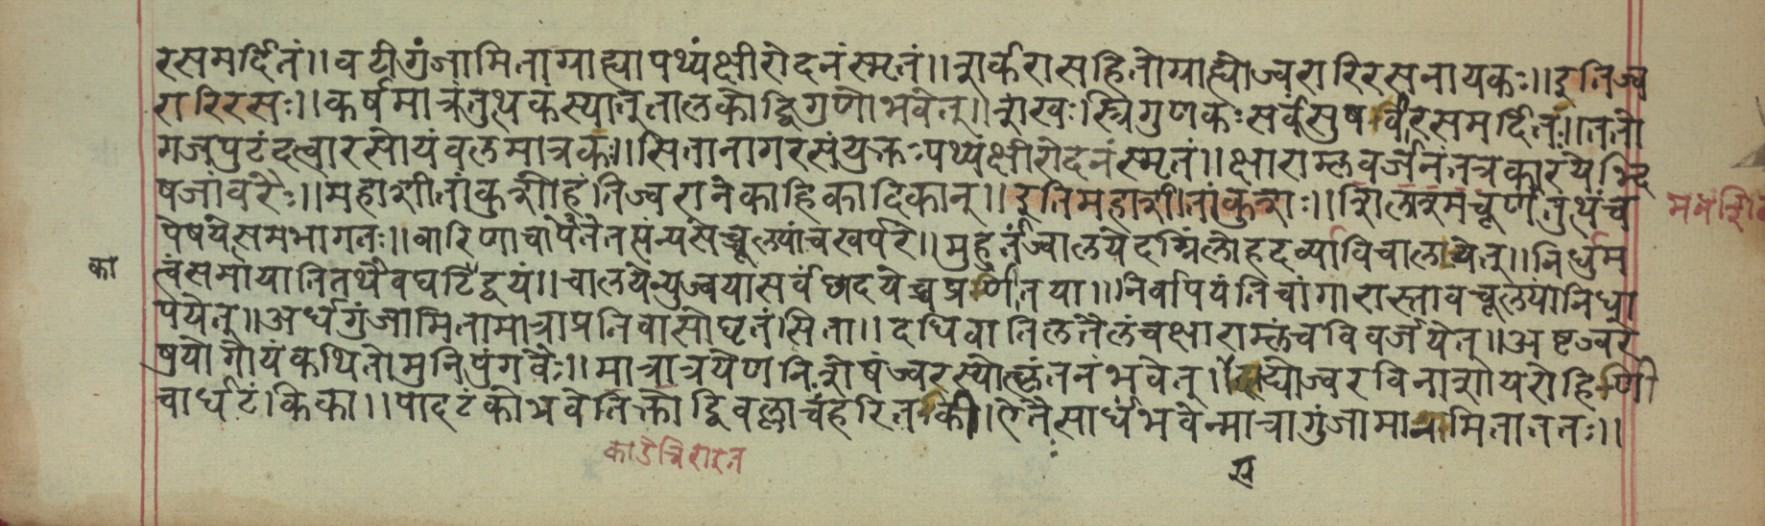 रसमर्दितं॥वटीगुंजामिताग्राह्यापथ्यंक्षीरोदनंस्मृतं॥शर्करासहितोग्राह्योज्वरारिरसनायकः॥इतिज्व
रारिरसः॥कर्षमात्रंतुथकंस्यात्तुतालकोद्विगुणोभवेत्॥शंखःस्त्रिगुणकःसर्वंसुषवीरसमर्दितं॥ततो
गजपुटंदत्वारसोयंवलमात्रकः॥सितानागरसंयुक्तःपथ्यंक्षीरोदनंस्मृतं॥क्षाराम्लवर्जनंतत्रकारयेभिद्
षजांवरैः॥महाशीतांकुशोहंतिज्वरानेकाहिकादिकान्॥इतिमहाशीतांकुशः॥शिलाश्मचूर्णतुथंच
पेषयेसमभागतः॥वारिणाचापेतेतसंन्यसेच्चूलयांचखर्परे॥मुहूर्तंज्वालयेदग्निंलोहदर्व्याविचालयेत्॥निर्धुम
का
त्वंसमायातितथैवघटिद्वयं॥चालयेन्युज्वयासर्वंछादयेच्चप्रणीतया॥निर्वापयंतिचांगारास्तावचूलयांनिधा
पयेत्॥अर्धगुंजामितामात्राप्रतिवासोघृतंसिता॥दधिवातिलतैलंचक्षाराम्लंचविवर्जयेत्॥अष्टज्वर
प्रयोगोयंकथितोमुनिपुंगवैः॥मात्रात्रयेणनिःशेषंज्वरस्योत्कृंतनंभवेत्॥ ज्वरविनाशायरोहिणी
चार्धटंकिका॥पादटंकोभवेतिक्तोद्विवल्लाचंहरितकी॥एतैसार्धंभवेन्मात्रागुंजामानामिताततः॥